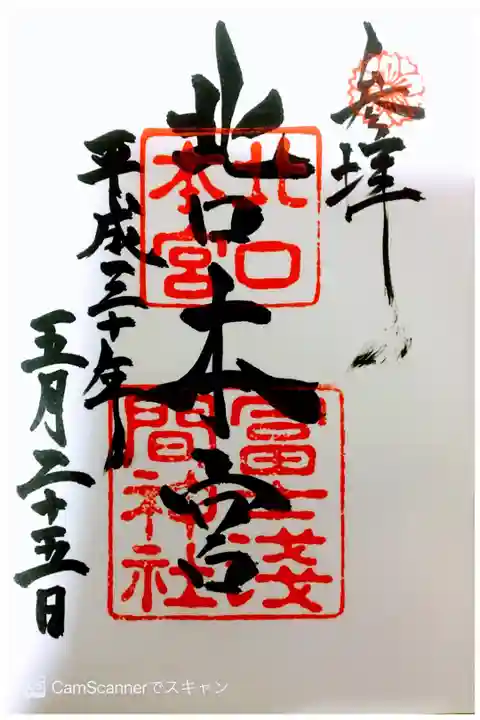 参拝
北口本宮
平成三十年
五月二十五日
北口
本宮
冨士浅
間神社
CamScannerでスキャン